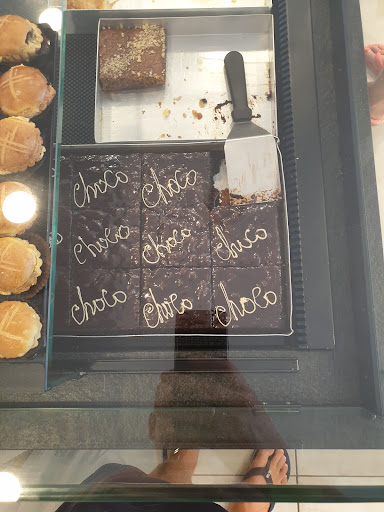 choco choco
choco choco choco
choco choco choco